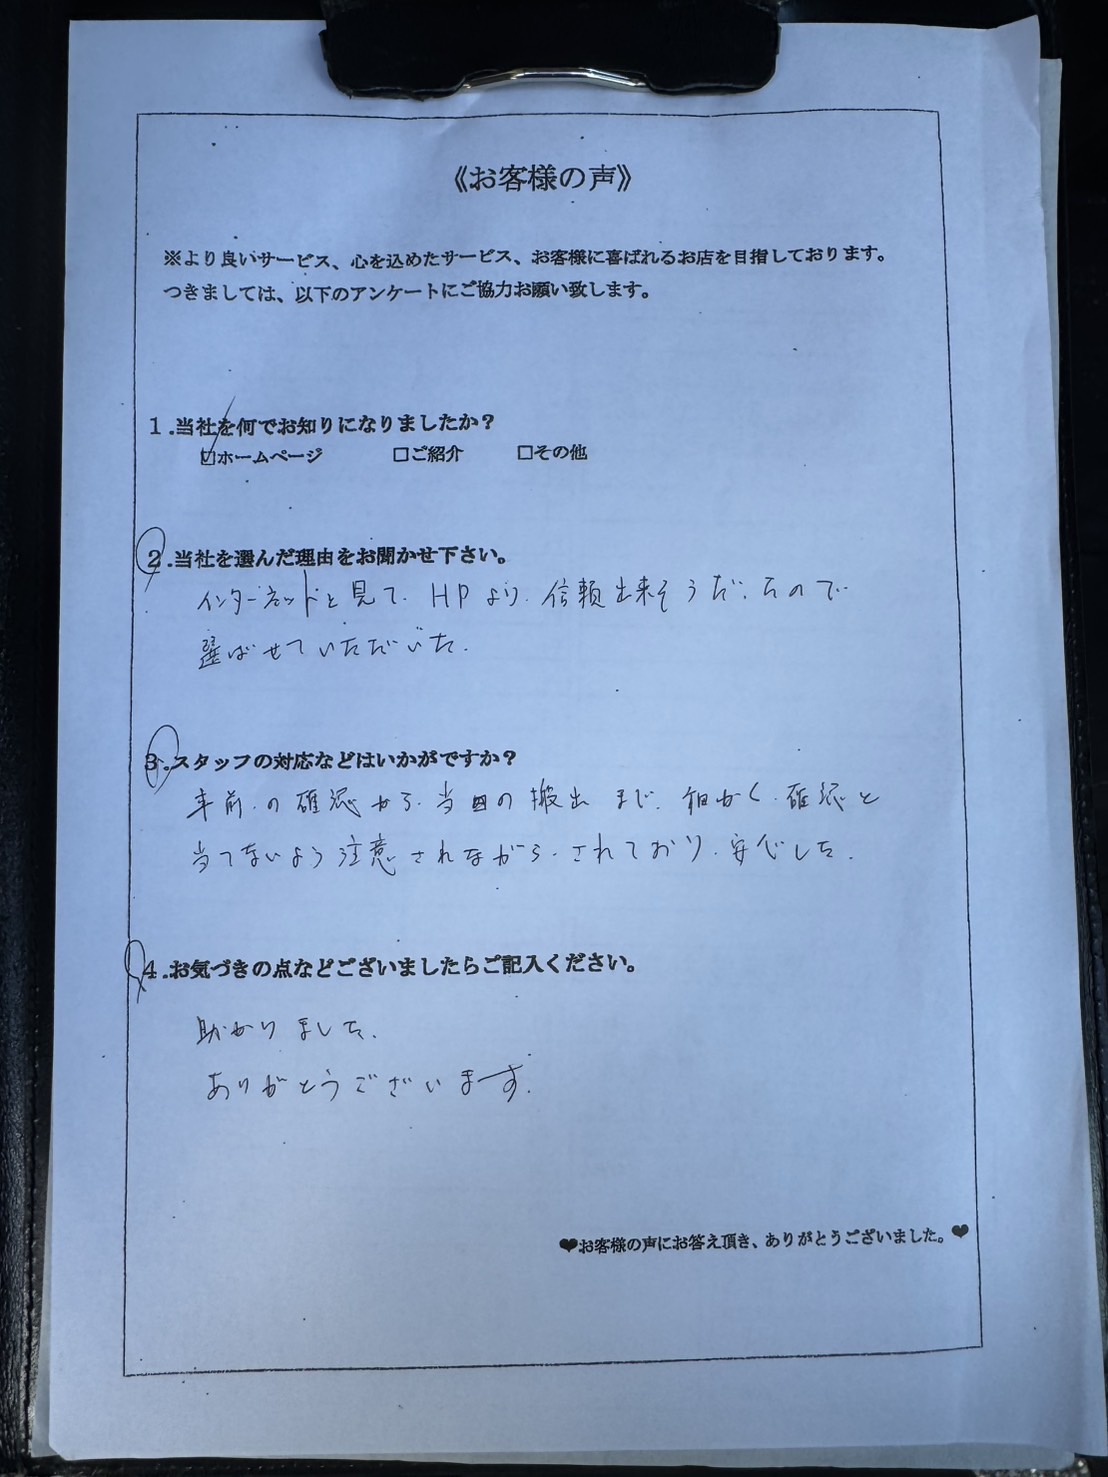 《お客様の声》
※より良いサービス、心を込めたサービス、お客様に喜ばれるお店を目指しております。
つきましては、以下のアンケートにご協力お願い致します。
1.当社を何でお知りになりましたか?
☑ホームページ □ご紹介 □その他
2.当社を選んだ理由をお聞かせ下さい。
インターネットを見て、HPより、信頼出来そうだったので
選ばせていただいた。
3.スタッフの対応などはいかがですか?
事前の確認から、当日の搬出まで、細かく、確認と
当てないよう注意されながら、されており、安心した。
4.お気づきの点などございましたらご記入ください。
助かりました。
ありがとうございます。
♥お客様の声にお答え頂き、ありがとうございました。♥